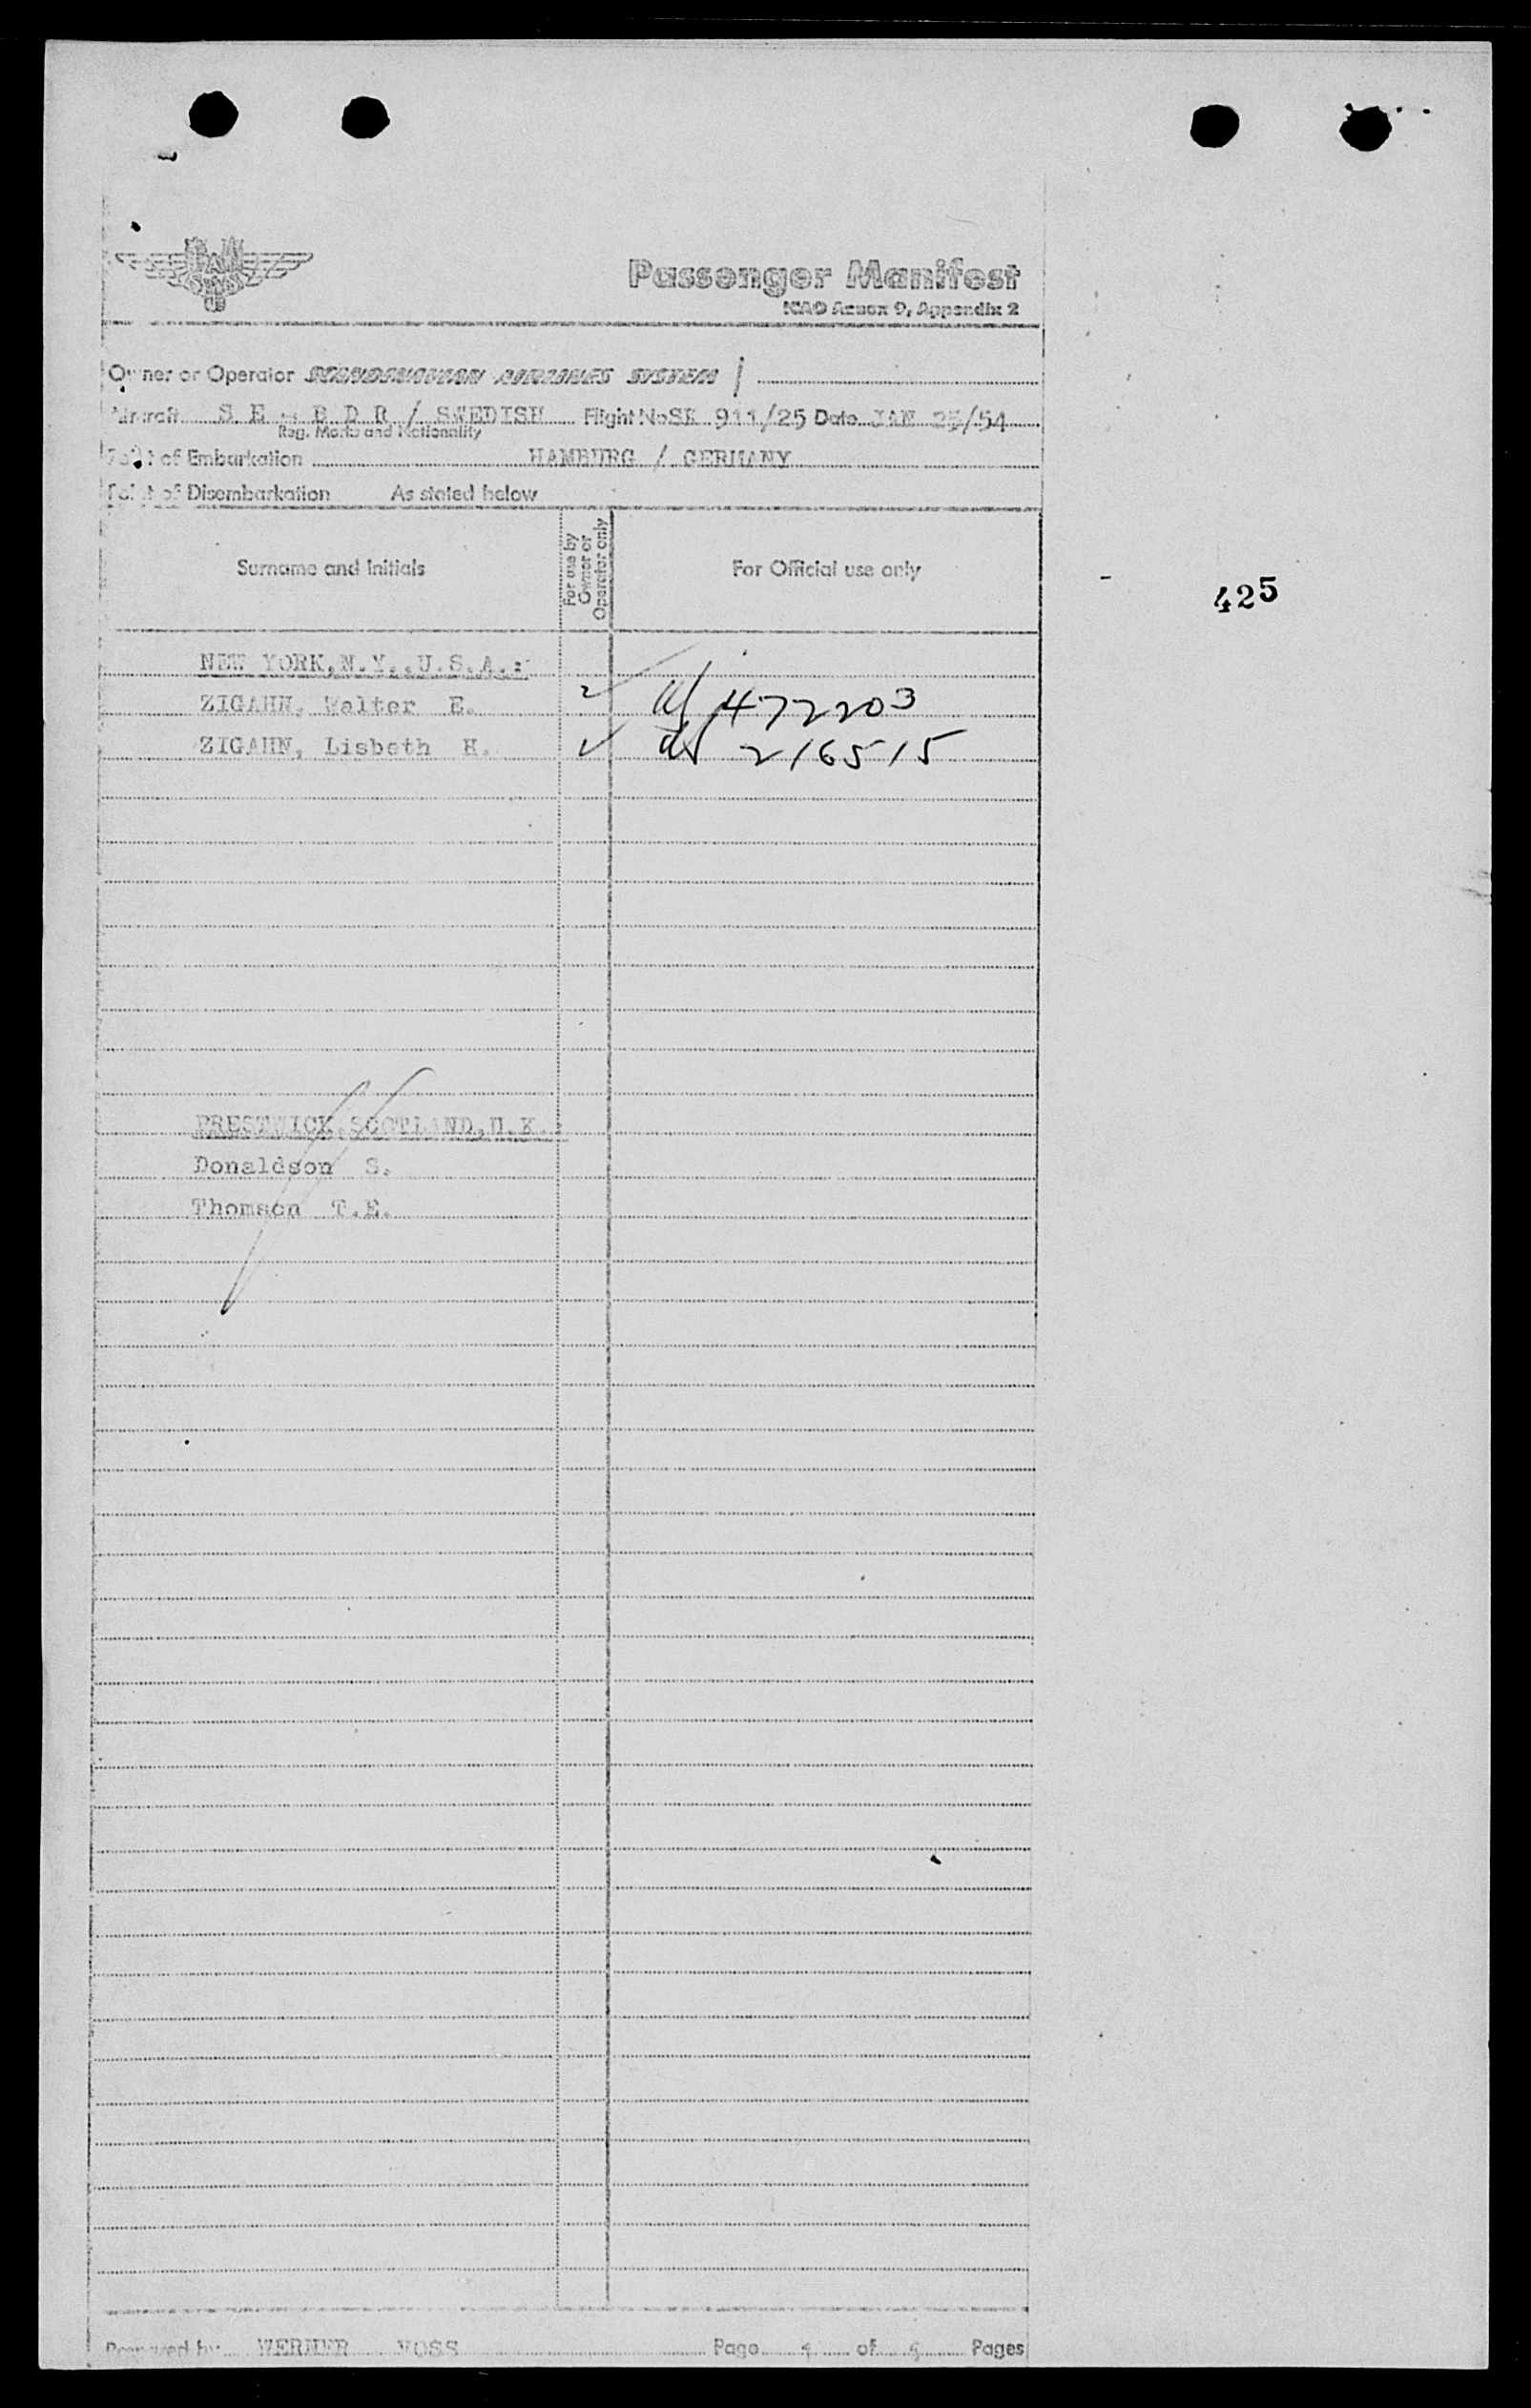 Passenger Manifest
ICAO Annex 9, Appendix 2
Owner or Operator SCANDINAVIAN AIRLINES SYSTEM
Aircraft S E - B D R / SWEDISH Flight No SK 911/25 Date JAN 25/54
Reg. Marks and Nationality
of Embarkation HAMBURG / GERMANY
Point of Disembarkation As stated below
Surname and Initials
For use by Owner or Operator only
For Official use only
425
NEW YORK, N.Y., U.S.A.:
ZIGAHN, Walter E. 472203
ZIGAHN, Lisbeth H. 216515
PRESTWICK, SCOTLAND, U.K.:
Donaldson S.
Thomson T.E.
Prepared by WERNER VOSS Page of Pages